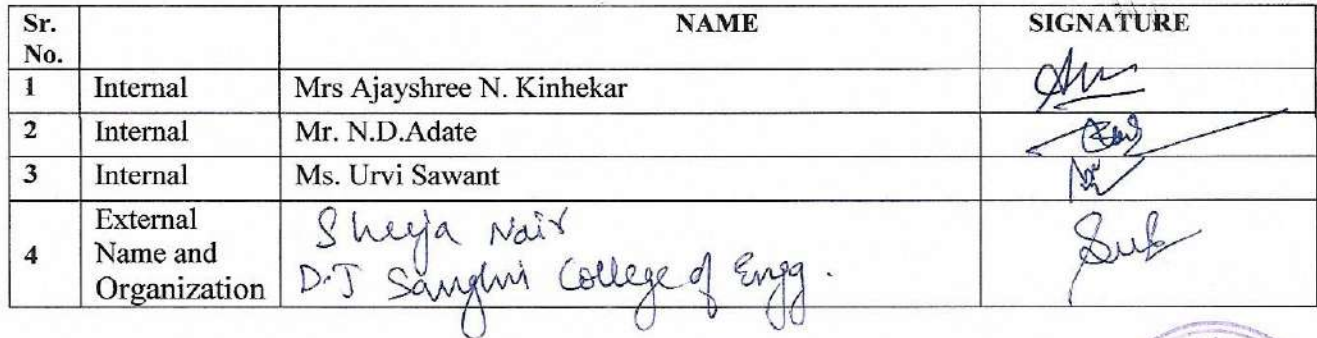 Sr. No. NAME SIGNATURE
1 Internal Mrs Ajayshree N. Kinhekar
2 Internal Mr. N.D.Adate
3 Internal Ms. Urvi Sawant
4 External Name and Organization
Sheeja Nair
D.J Sanghvi College of Engg.